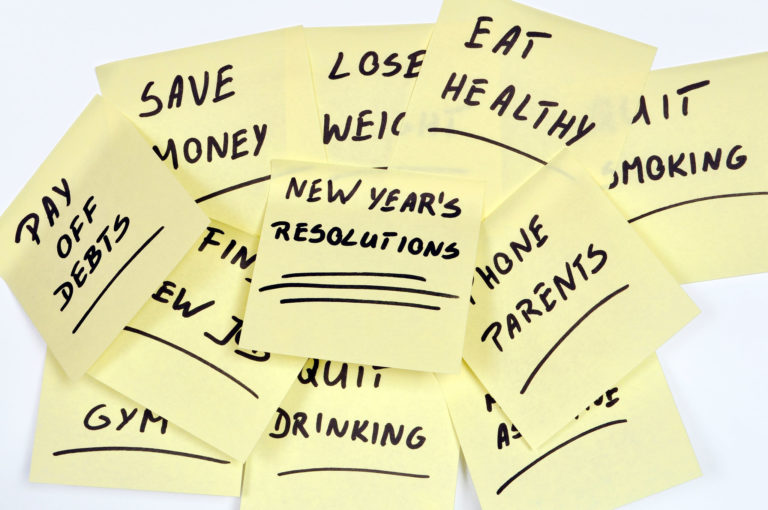 SAVE
MONEY
LOSE
WEIG
EAT
HEALTHY
UIT
SMOKING
PAY
OFF
DEBTS
NEW YEAR'S
RESOLUTIONS
FIN
EW JOB
PHONE
PARENTS
GYM
QUIT
DRINKING